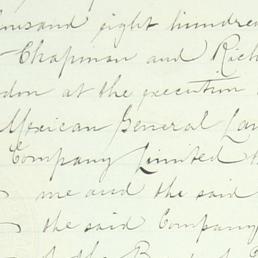 thousand eight hundred
Chapman and Rich
don at the execution
Mexican General Lan
Company Limited
me and the said
the said Company
of the Board of